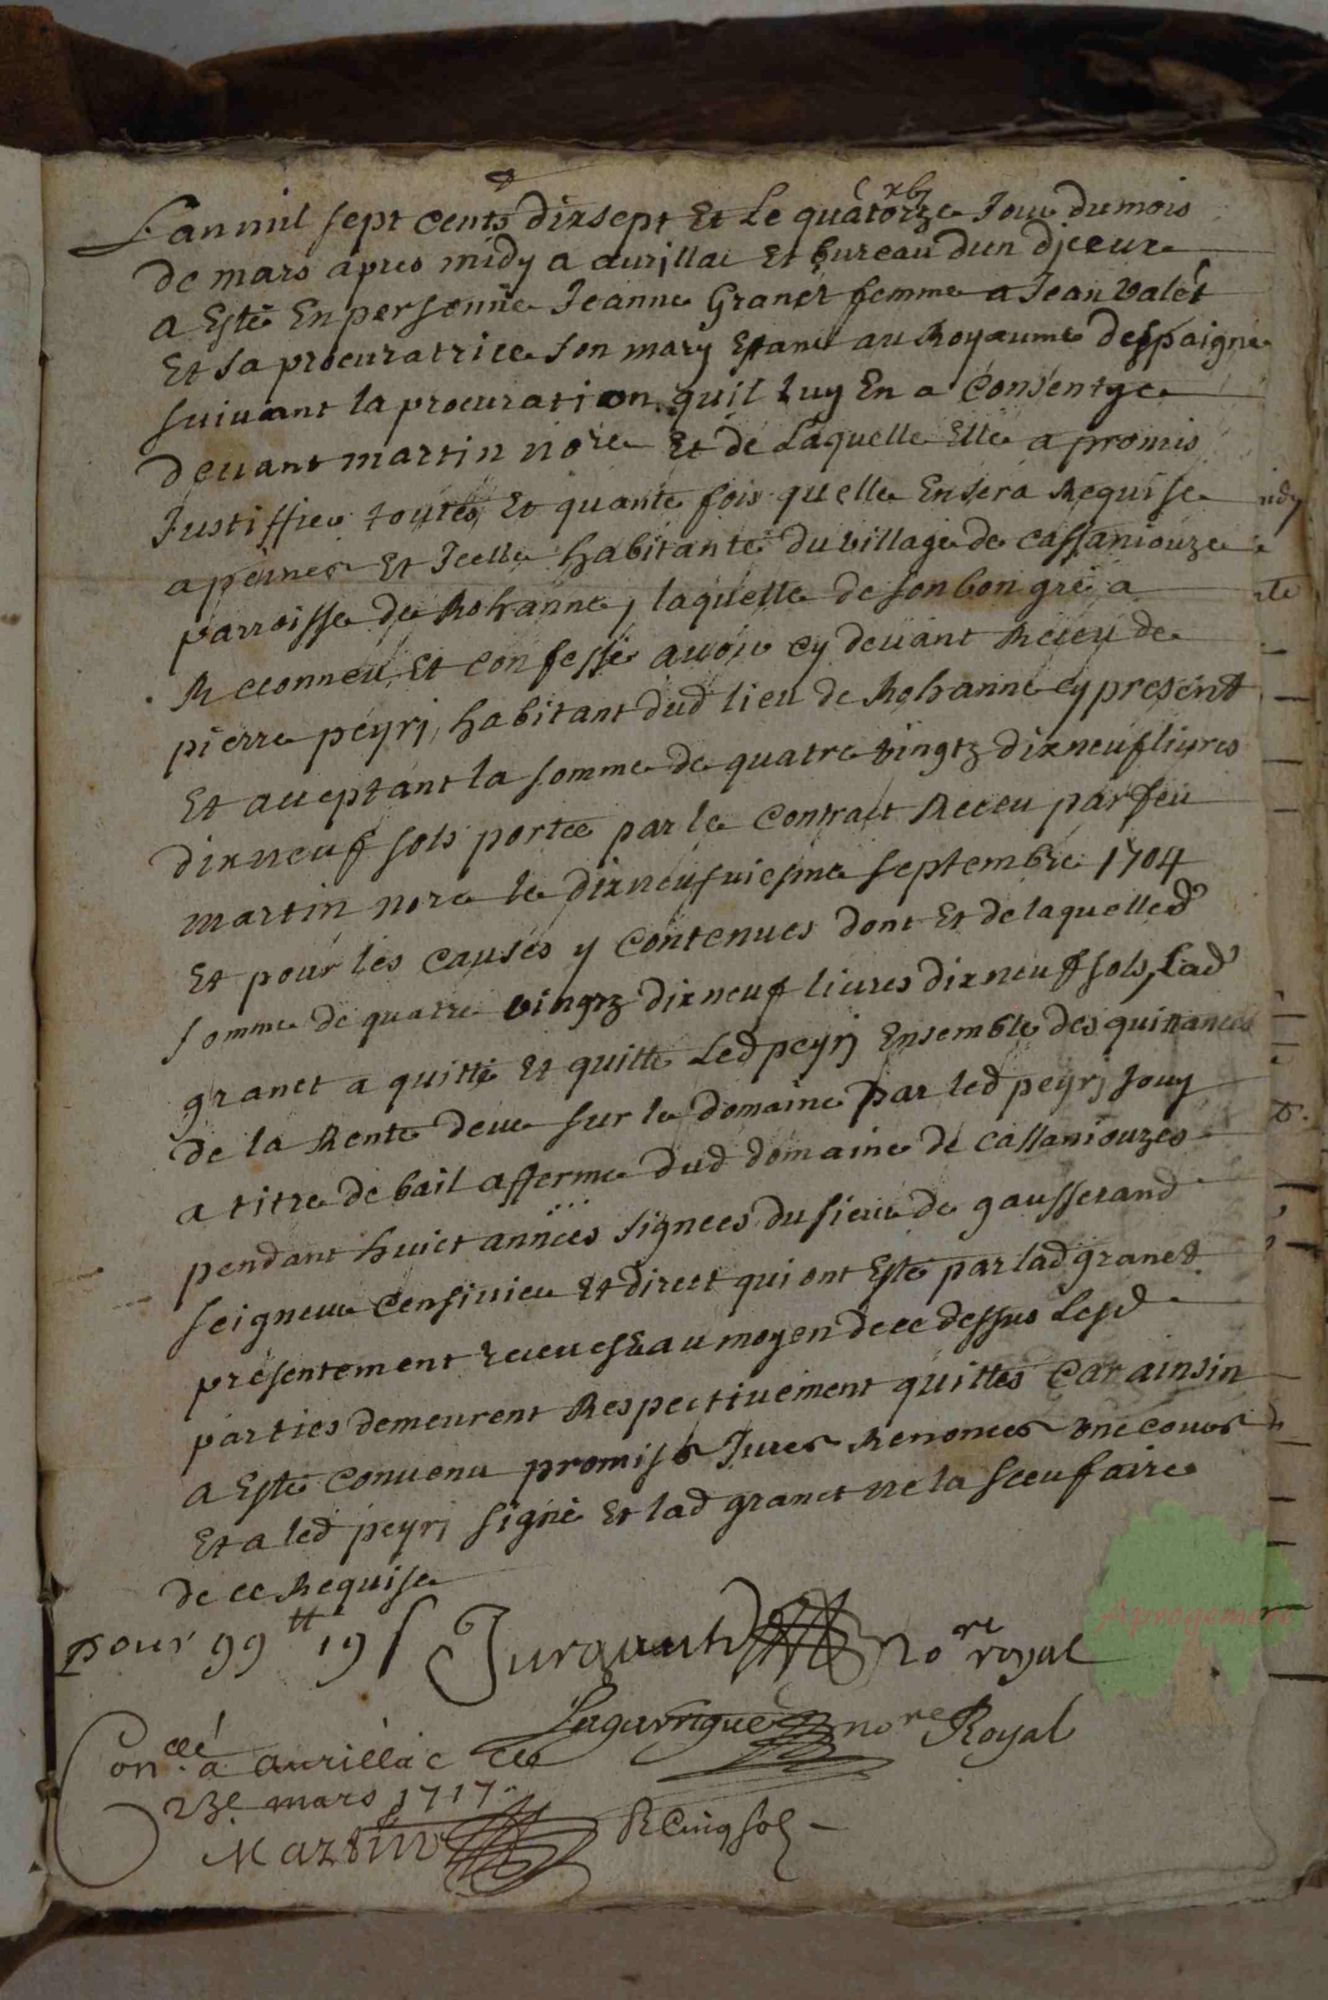 Lan mil sept cents dixsept Et Le quatorze Jour du mois
de mars apres midy a aurillac Et bureau dun diceux
a Esté En personne Jeanne Granet femme a Jean Valet
Et sa procuratrice son mary Estant au Royaume despaigne
suivant la procuration quil luy En a Consentye
devant martin nore Et de Laquelle Elle a promis
Justiffier toutes Et quante fois quelle En sera Requise
a peines Et Icelle habitante du village de cassaniouze
parroisse de Rohanne, laquelle de son bon gre a
Reconneu Et confessé avoir cy devant Receu de
pierre peyrj habitant dud lieu de Rohanne cy present
Et aceptant la somme de quatre vingtz dixneuf livres
dixneuf sols portée par le Contract Receu par feu
martin nore le dixneufviesme septembre 1704
Et pour les causes y contenues dont Et de laquelled
somme de quatre vingtz dixneuf livres dixneuf sols, Lad
granet a quitté et quitte Led peyrj Ensemble des quittances
de la Rente deue sur le domaine par led peyrj Jouy
a titre de bail afferme dud domaine de cassaniouzes
pendant huict années signees du sieur de gausserand
seigneur Censivier et direct qui ont Esté par lad granet
presentement receues & au moyen de ce dessus Lesd
parties demeurent Respectivement quittes Car ainsin
a Esté convenu promis Jures Renonces
Et a led peyrj signé Et lad granet ne la sceu faire
de ce Requise
pour 99tt 19s nore royal
Lagarrigue nore Royal
Conllé a aurillac le
23e mars 1717
Martin
R Cinq sols
Aprogemere